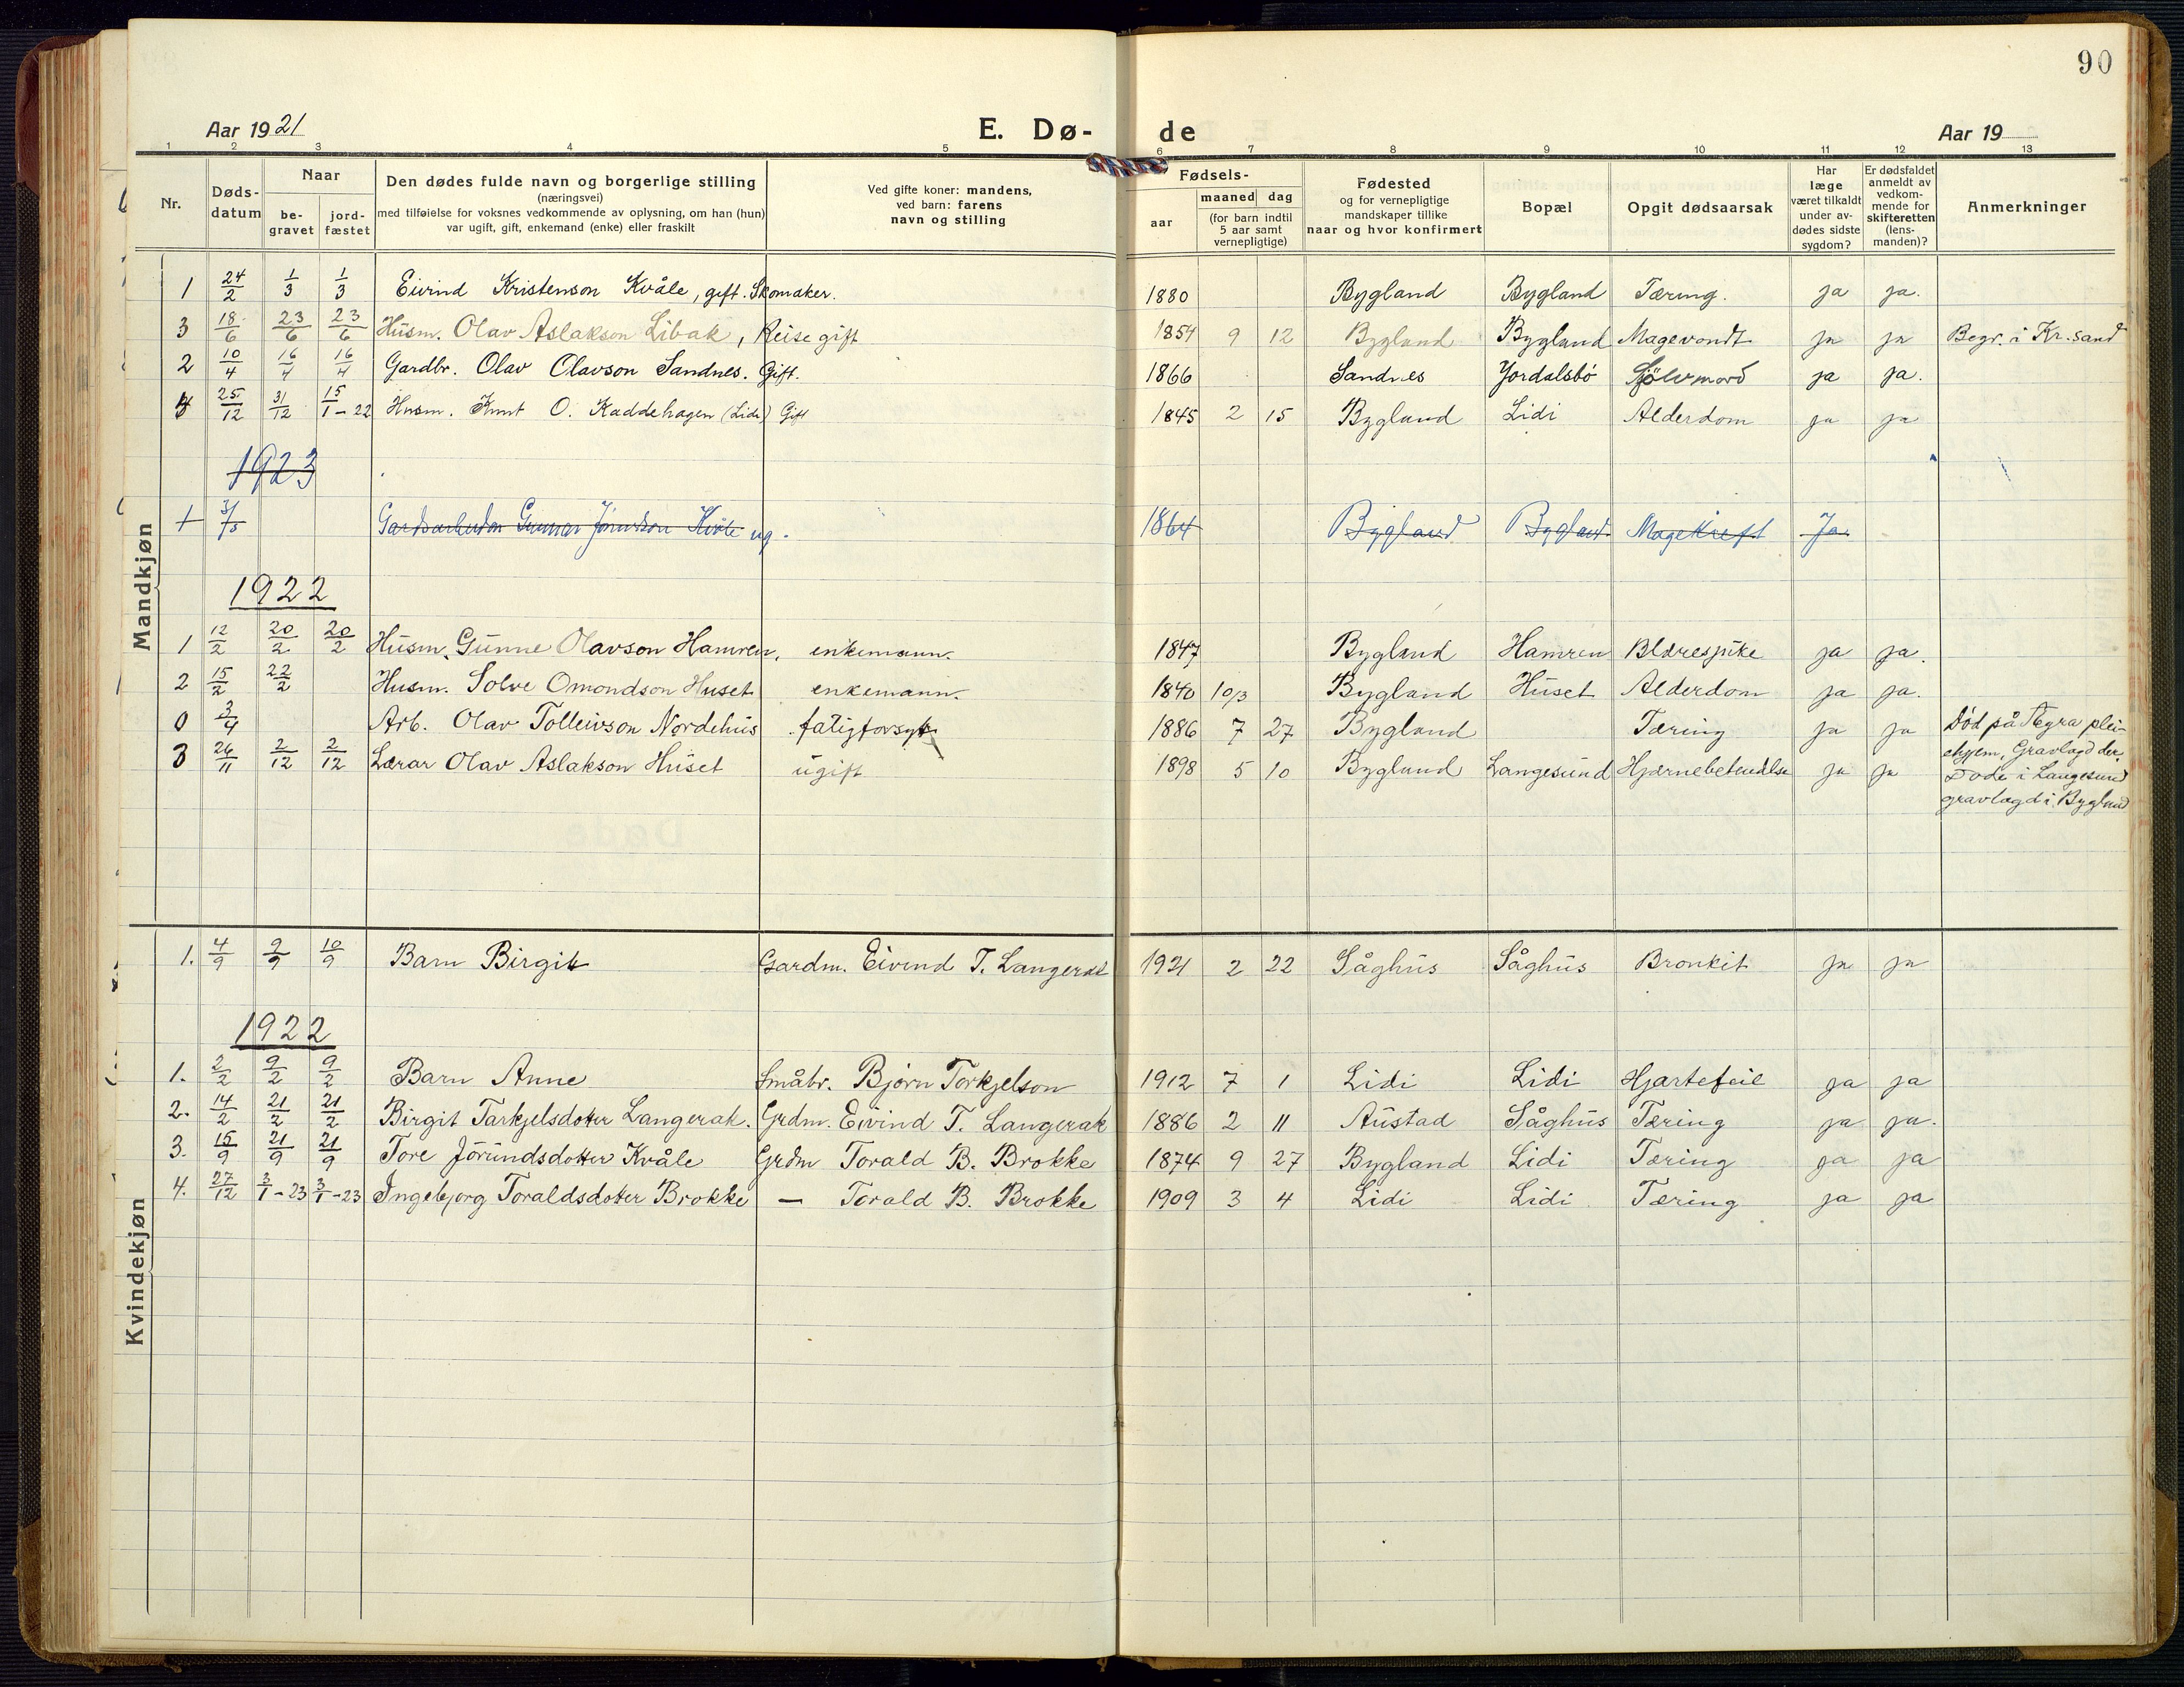 90
Aar 1921 E. Dø- de Aar 19
1 2 3 4 5 6 7 8 9 10 11 12 13
Nr. Døds-datum Naar be-gravet jord-fæstet Den dødes fulde navn og borgerlige stilling (næringsvei) med tilføielse for voksnes vedkommende av oplysning, om han (hun) var ugift, gift, enkemand (enke) eller fraskilt Ved gifte koner: mandens, ved barn: farens navn og stilling Fødsels- aar maaned dag (for barn indtil 5 aar samt vernepligtige) Fødested og for vernepligtige mandskaper tillike naar og hvor konfirmert Bopæl Opgit dødsaarsak Har læge været tilkaldt under av-dødes sidste sygdom? Er dødsfaldet anmeldt av vedkom-mende for skifteretten (lens-manden)? Anmerkninger
Mandkjøn
1 24/2 1/3 1/3 Eivind Kristenson Kvåle, gift. Skomaker. 1880 Bygland Bygland Tæring. ja ja.
3 18/6 23/6 23/6 Husm. Olav Aslakson Libak, Reise gift 1854 9 12 Bygland Bygland Magevondt ja ja Begr. i Kr.sand
2 10/4 16/4 16/4 Gardbr. Olav Olavson Sandnes. Gift. 1866 Sandnes Jordalsbö Sjölvmord ja ja.
4 25/12 31/12 15/1-22 Husm. Knut O. Kaddehagen (Lidi) Gift 1845 2 15 Bygland Lidi Alderdom ja ja
1923
1 31/5 Gardsarbeidar Gunnar Jørundson Kvåle ug. 1864 Bygland Bygland Magekreft Ja
1922
1 12/2 20/2 20/2 Husm. Gunne Olavson Hamren, enkemann. 1847 Bygland Hamren Blæresjuke ja ja.
2 15/2 22/2 Husm. Solve Omondson Huset enkemann. 1840 10/3 Bygland Huset Alderdom ja ja.
0 3/4 Arb. Olav Tolleivson Nordehus fatigforsyt 1886 7 27 Bygland Tæring ja ja Død på Ægra plei-
3 26/11 2/12 2/12 Lærar Olav Aslakson Huset ugift 1898 5 10 Bygland Langesund Hjernebetendlse ja ja ehjem. Gravlagd der.
Døde i Langesund
gravlagd i Bygland
Kvindekjøn
1. 4/9 9/9 10/9 Barn Birgit Gardm. Eivind T. Langerak 1921 2 22 Såghus Såghus Bronkit ja ja
1922
1. 2/2 9/2 9/2 Barn Anne Småbr. Bjørn Torkjelson 1912 7 1 Lidi Lidi Hjartefeil ja ja
2. 14/2 21/2 21/2 Birgit Tarkjelsdotter Langerak. Grdm. Eivind T. Langerak 1886 2 11 Austad Såghus Tæring ja ja.
3. 15/9 21/9 21/9 Tore Jörundsdotter Kvåle Grdm Torald B. Brokke 1874 9 27 Bygland Lidi Tæring ja ja
4. 27/12 3/1-23 3/1-23 Ingebjorg Toraldsdotter Brokke — Torald B. Brokke 1909 3 4 Lidi Lidi Tæring ja ja